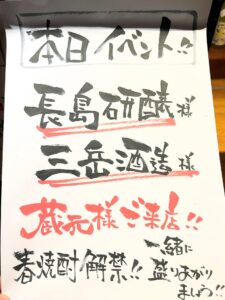 本日イベント!!
長島研醸様
三岳酒造様
蔵元様ご来店!!
春焼酎解禁!!
一緒に
盛りあがり
ましょう!!